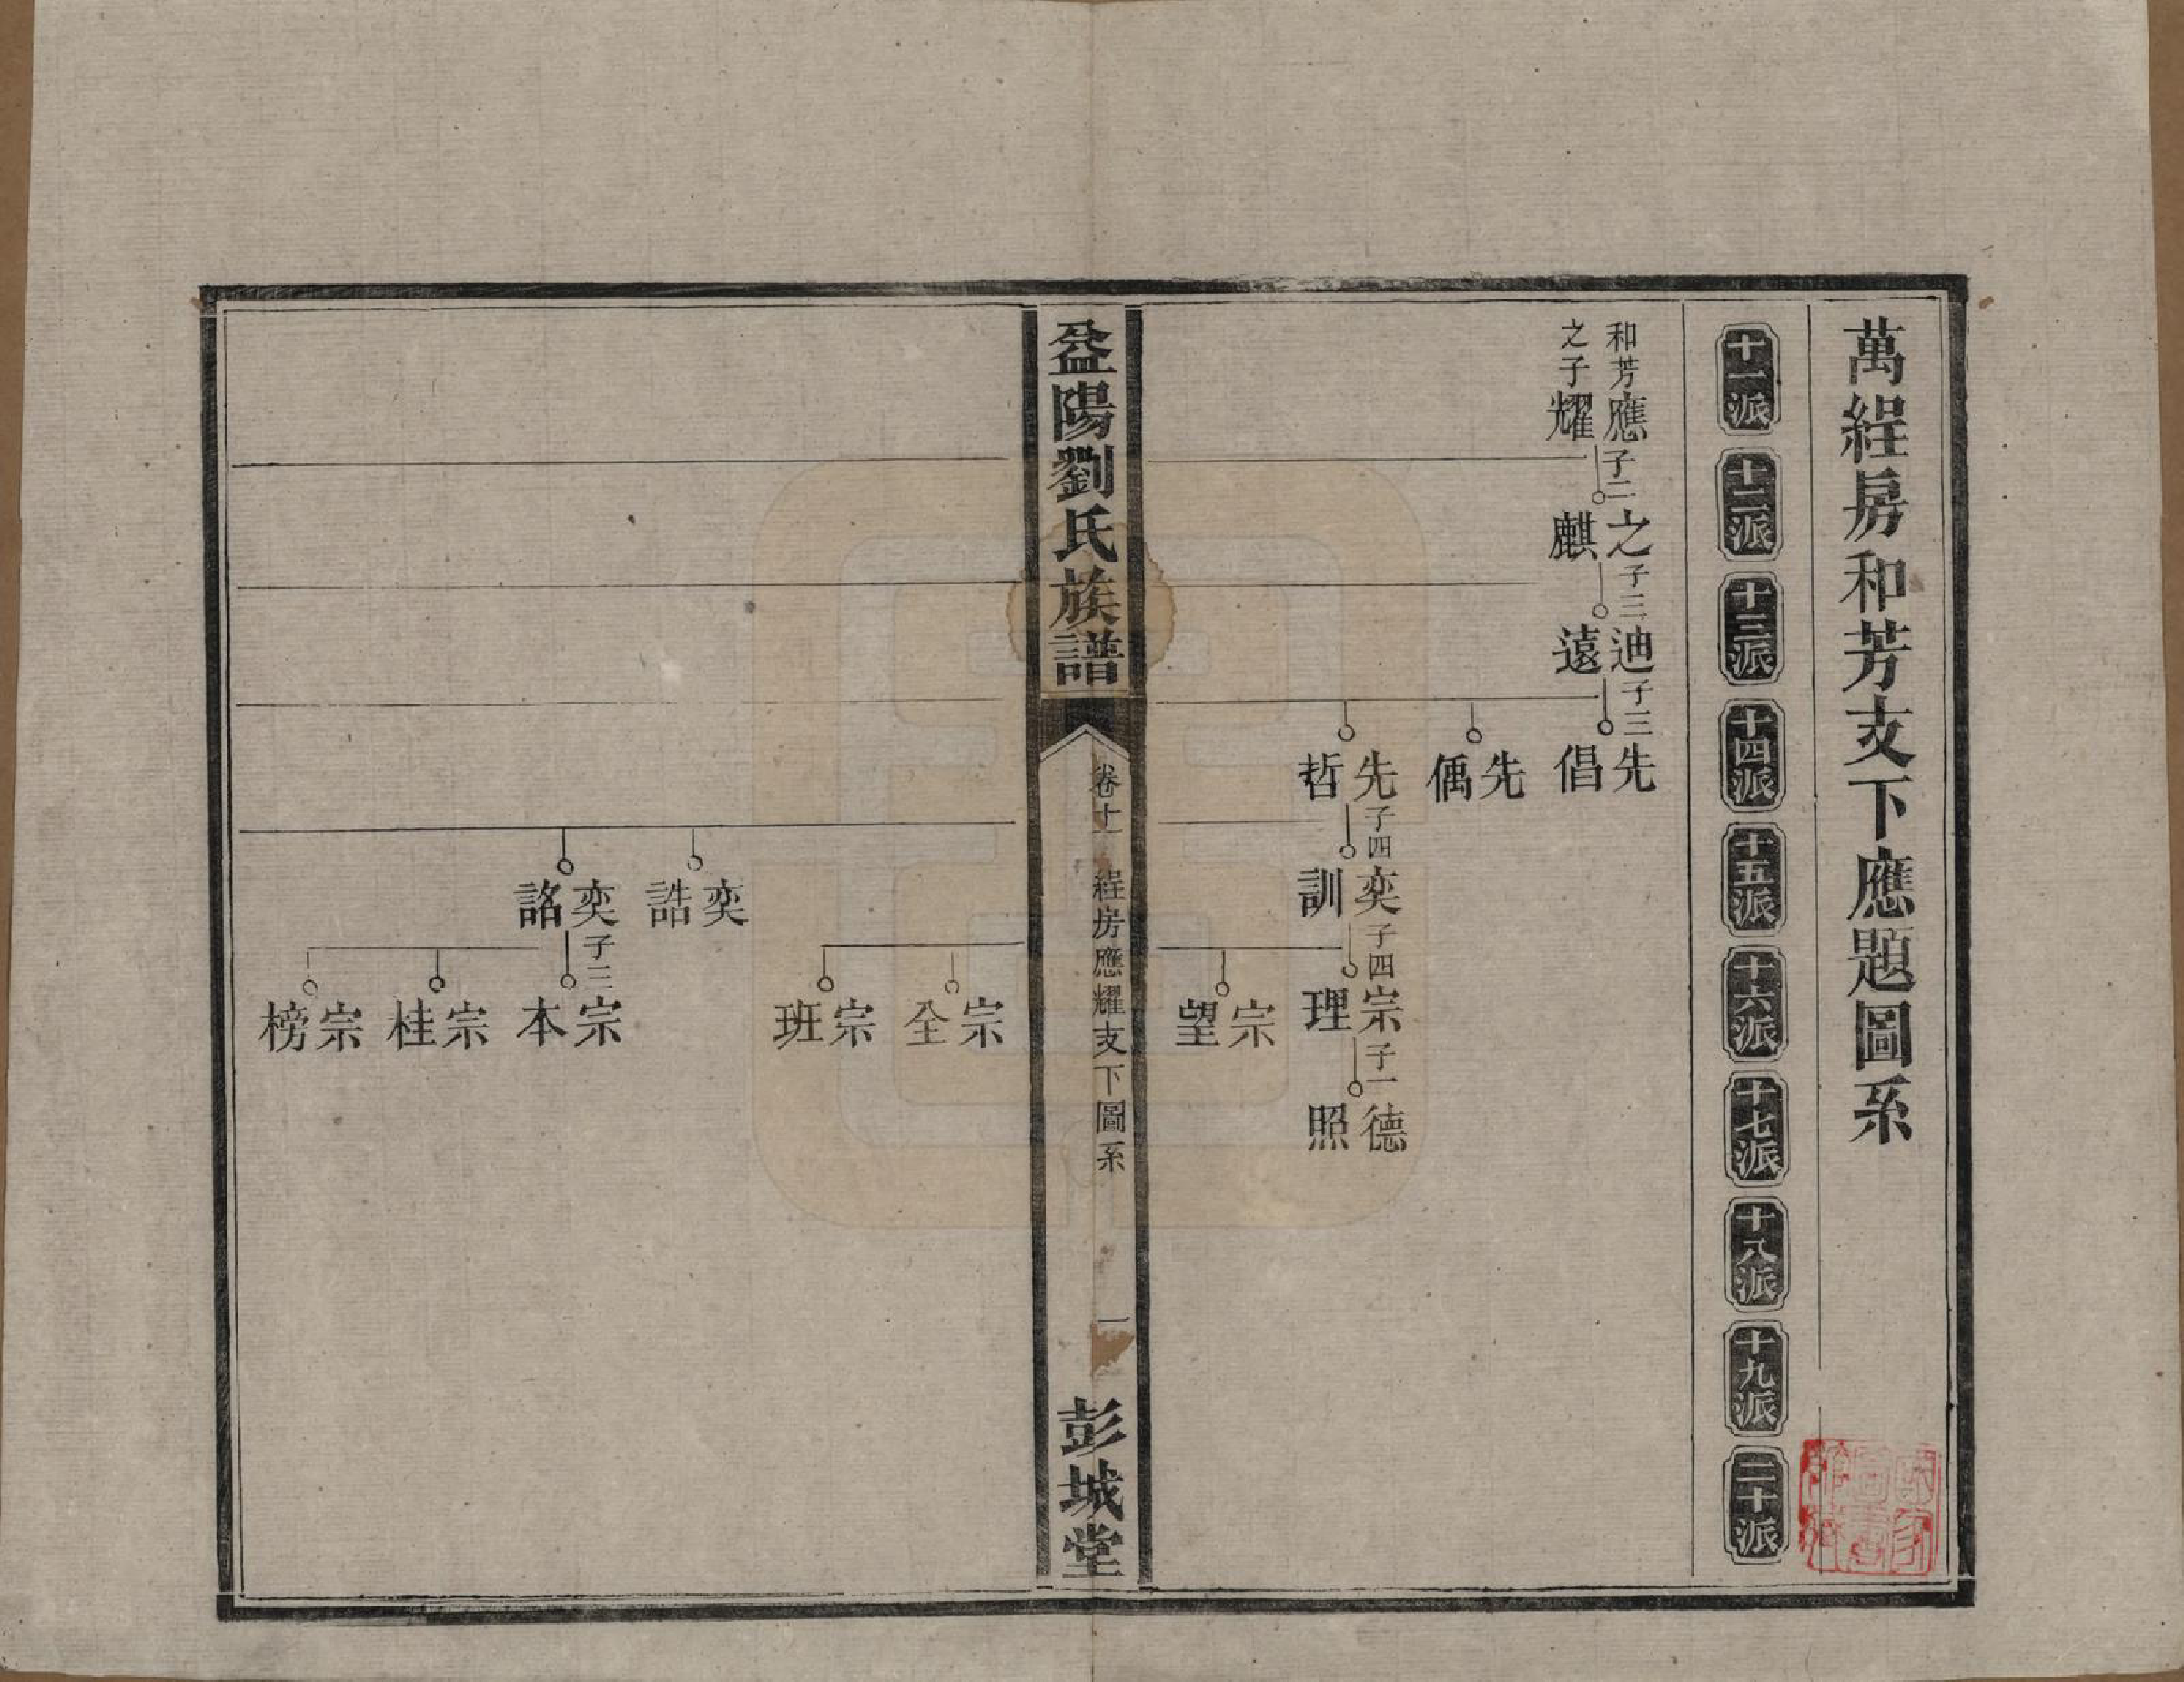 萬綎房和芳支下應題圖系
十一派
十二派
十三派
十四派
十五派
十六派
十七派
十八派
十九派
二十派
和芳之子
應耀
子二
之麒
子三
迪遠
子三
先倡
先偊
先哲
子四
奕訓
子四
宗理
子一
德照
宗望
益陽劉氏族譜
卷十一
綎房應耀支下圖系
一
彭城堂
宗全
宗班
奕誥
奕詺
子三
宗本
宗桂
宗榜